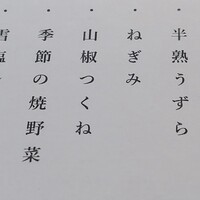 ・半熟うずら
・ねぎみ
・山椒つくね
・季節の焼野菜
・雪塩